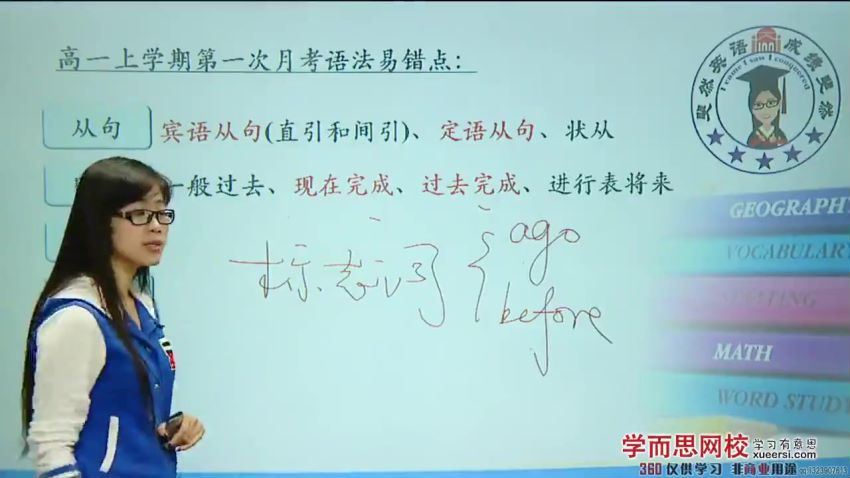 高一上学期第一次月考语法易错点:
从句 宾语从句(直引和间引)、定语从句、状从
一般过去、现在完成、过去完成、进行表将来
标志词 { ago
before
I came I saw I conquered
GEOGRAPHY
VOCABULARY
SPELLING
MATH
WORD STUDY
学而思网校 学习有意思
xueersi.com
360仅供学习 非商业用途